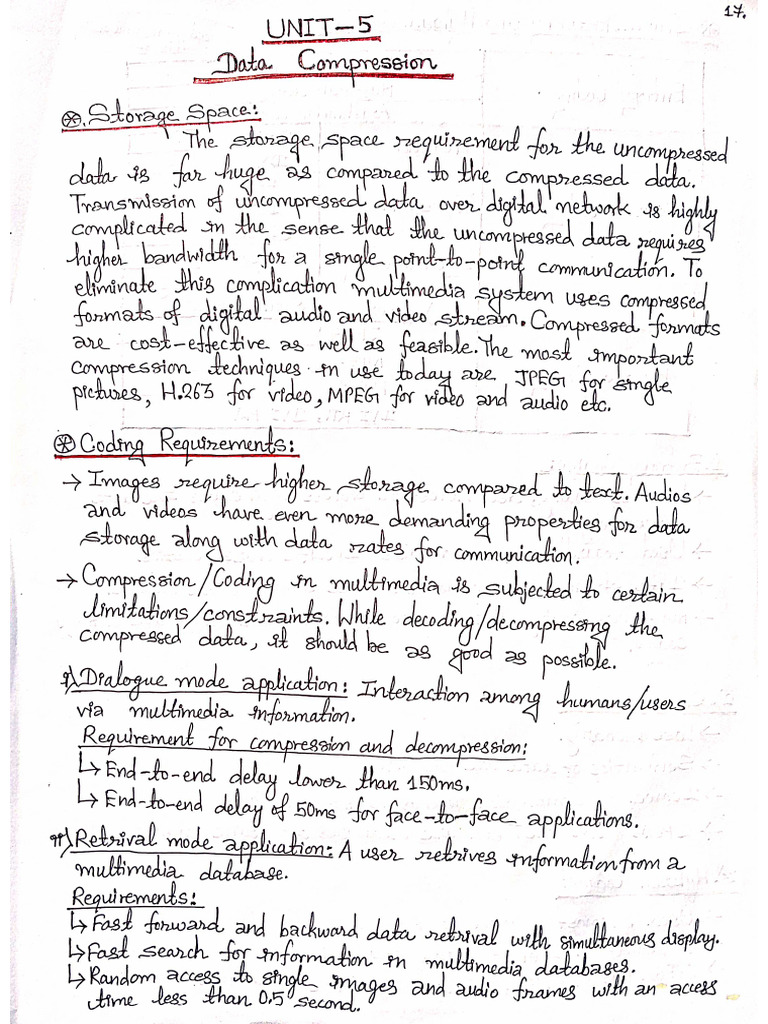 17.
UNIT-5
Data Compression
⊛. Storage Space:
The storage space requirement for the uncompressed
data is far huge as compared to the compressed data.
Transmission of uncompressed data over digital network is highly
complicated in the sense that the uncompressed data requires
higher bandwidth for a single point-to-point communication. To
eliminate this complication multimedia system uses compressed
formats of digital audio and video stream. Compressed formats
are cost-effective as well as feasible. The most important
compression techniques in use today are JPEG for single
pictures, H.263 for video, MPEG for video and audio etc.
⊛ Coding Requirements:
→ Images require higher storage compared to text. Audios
and videos have even more demanding properties for data
storage along with data rates for communication.
→ Compression/Coding in multimedia is subjected to certain
limitations/constraints. While decoding/decompressing the
compressed data, it should be as good as possible.
i) Dialogue mode application: Interaction among humans/users
via multimedia information.
Requirement for compression and decompression:
↳ End-to-end delay lower than 150ms.
↳ End-to-end delay of 50ms for face-to-face applications.
ii) Retrival mode application: A user retrives information from a
multimedia database.
Requirements:
↳ Fast forward and backward data retrival with simultaneous display.
↳ Fast search for information in multimedia databases.
↳ Random access to single images and audio frames with an access
time less than 0.5 second.